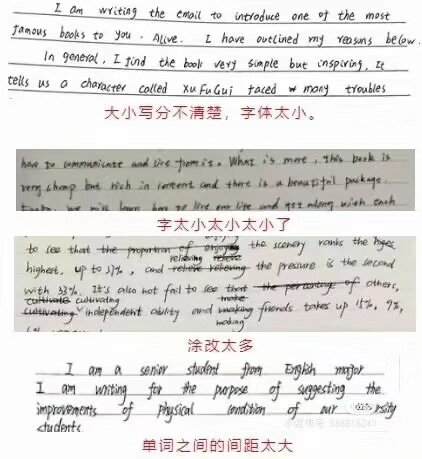 I am writing the email to introduce one of the most
famous books to you. Alive. I have outlined my reasons below.
In general, I find the book very simple but inspiring. It
tells us a character called Xu FuGui faced many troubles
大小写分不清楚，字体太小。
how to communicate and live from it. What is more, this book is
very cheap but rich in content and there is a beautiful package.
we miss learn how to live our life and get along with each
字太小太小太小了
enjoying
to see that the proportion of enjoying the scenery ranks the
relieving relieve
highest, up to 37%, and relieve relieving the pressure is the second
with 33%. It's also not fail to see that the percentage of others,
cultivate cultivating make
cultivating independent ability and making friends takes up 15%, 9%,
making
涂改太多
I am a senior student from English major
I am writing for the purpose of suggesting the
improvements of physical condition of our rsity
students
单词之间的间距太大